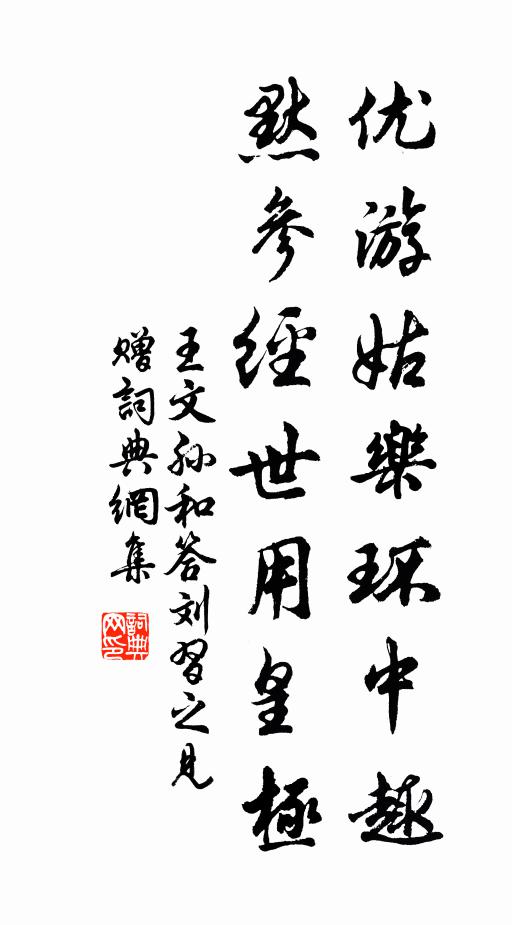 优游姑樂环中趣
默参經世用皇極
王文孙和答刘習之見
赠詞典網集
詞典
网印